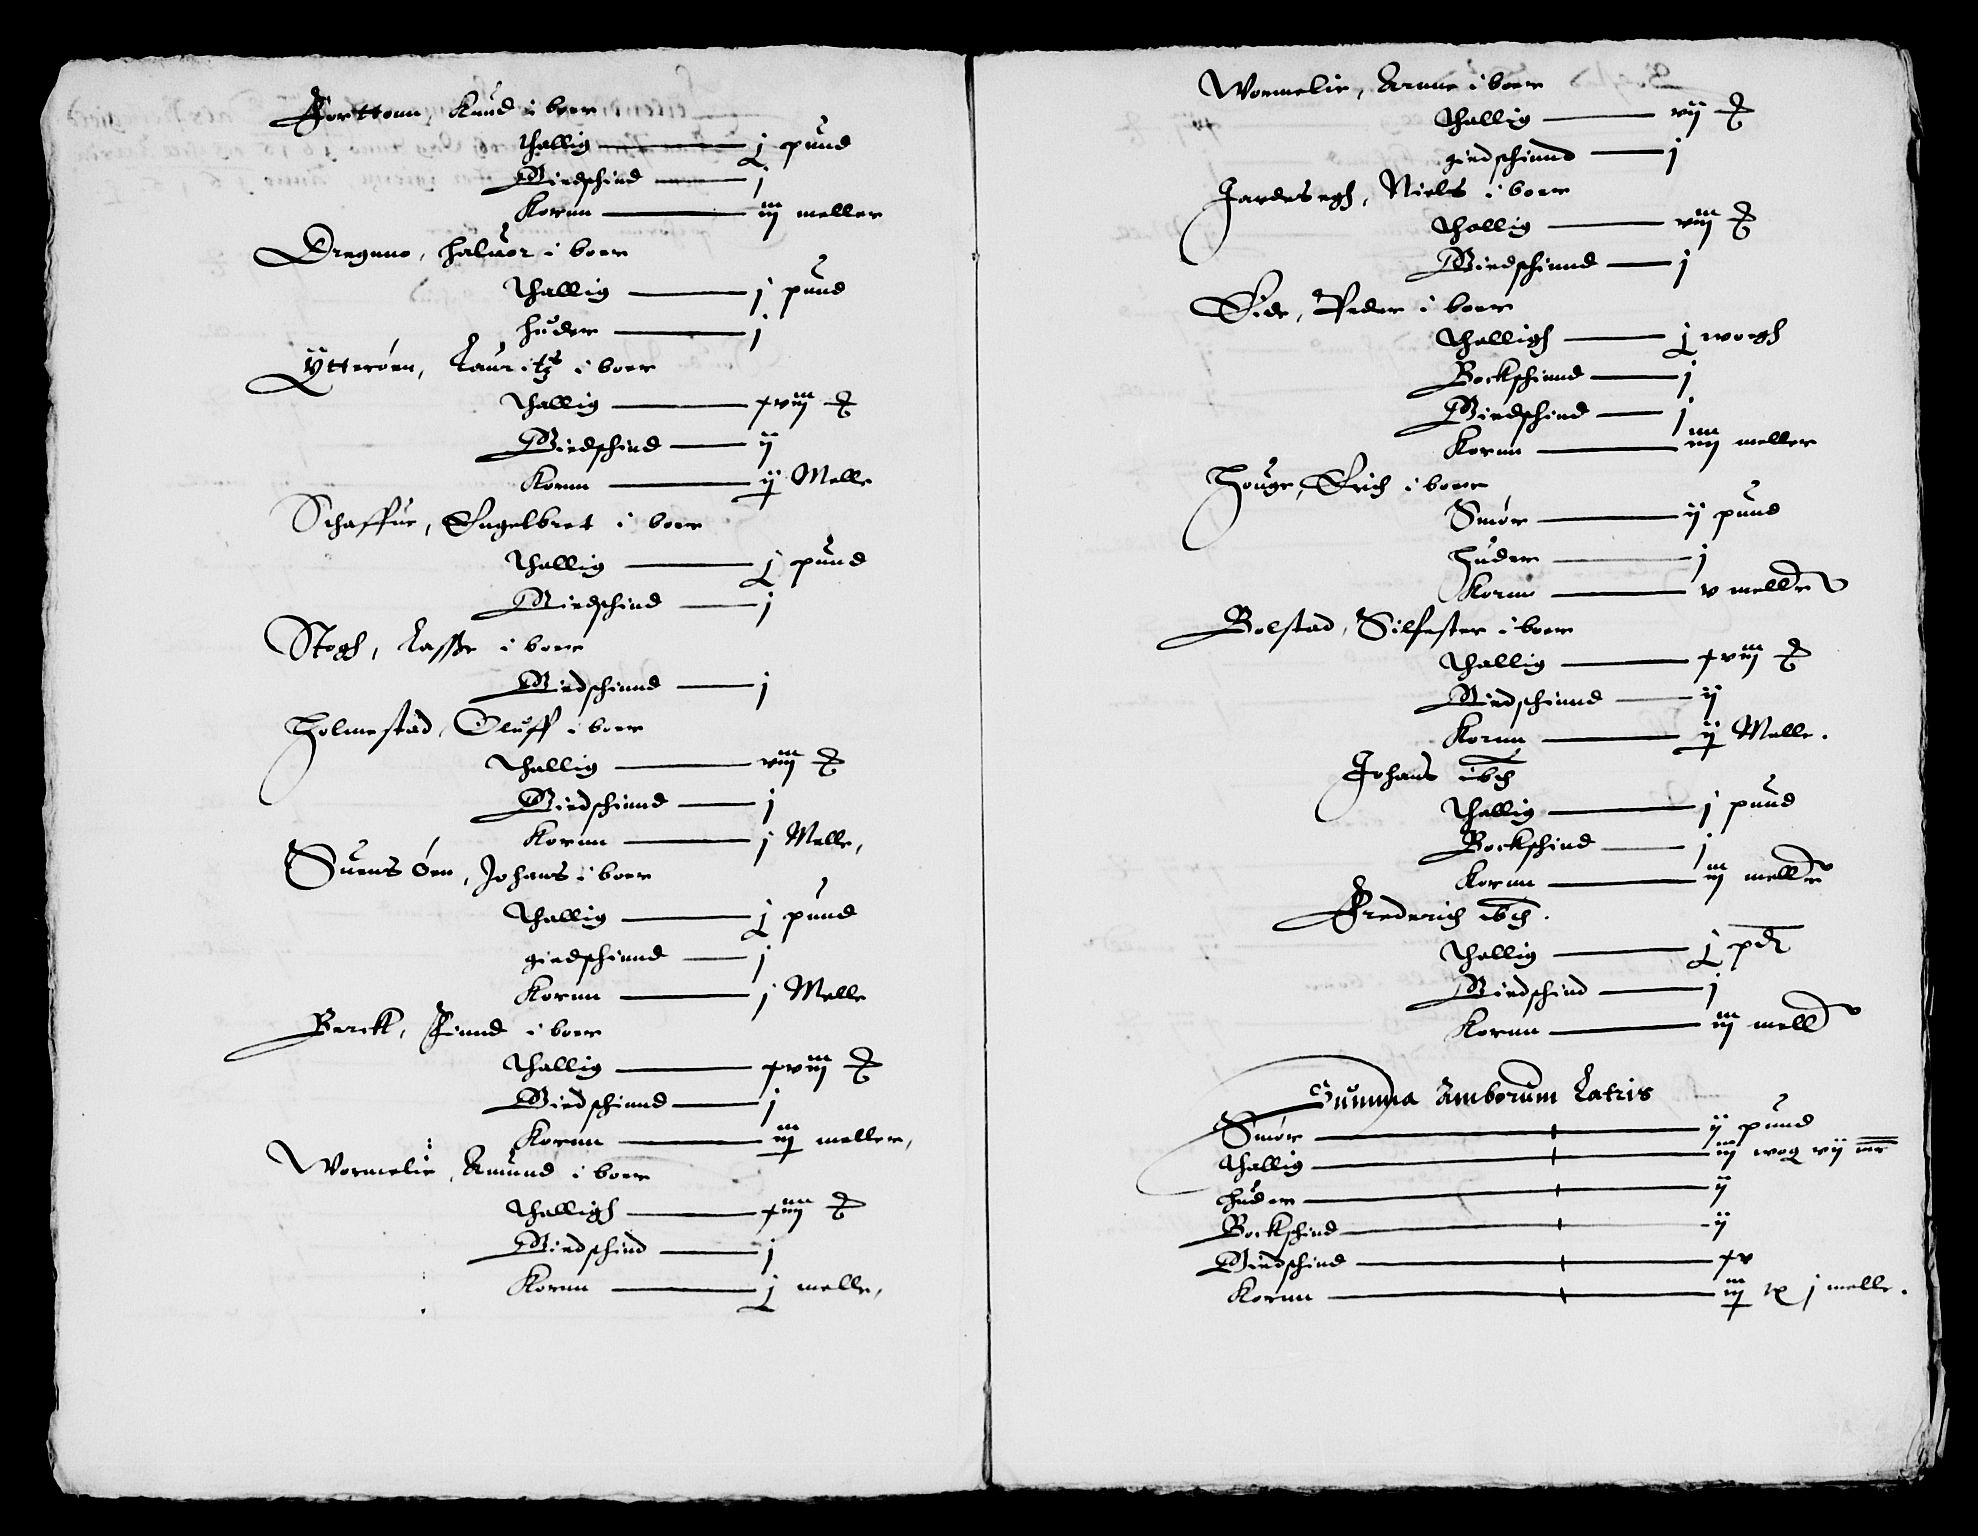 Forttonn, Knud i boer
Thallig — j pund
Giedschind — j
Kornn — iij meller
Dregnno, Haluor i boer
Thallig — j pund
Huder — j
Ytterøen, Lauritz i boer
Thallig — xviij
Giedschind — ij
Kornn — ij Melle
Schaffue, Engelbret i boer
Thallig — j pund
Giedschind — j
Stogh, Lasße i boer
Giedschinnd — j
Holmestad, Oluff i boer
Thallig — viij
Giedschinnd — j
Kornn — j Melle,
Suensøen, Johans i boer
Thallig — j pund
giedschinnd — j
Kornn — j Melle
Berck, Finnd i boer
Thallig — xviij
Giedschinnd — j
Kornn — iij meller,
Wormelie, Amund i boer
Thalligh — xiiij
Giedschind — j
Kornn — j melle,
Wormelie, Arnne i boer
Thallig — vij
giedschinnd — j
Jardesegh, Niels i boer
Thallig — viij
Giedschinnd — j
Eide, Peder i boer
Thalligh — j wogh
Bockschinnd — j
Giedschind — j
Kornn — iiij meller
Houge, Erich i boer
Smør — ij pund
Huder — j
Kornn — v meller
Bolstad, Silfester i boer
Thallig — xviij
Giedschinnd — ij
Kornn — ij Melle.
Johans ibch
Thallig — j pund
Bockschind — j
Kornn — iij meller
Frederich ibch.
Thallig — j pd
Giedschind — j
Kornn — iij mell
Summa Amborum Latris
Smør — ij pund
Thallig — iiij wog vij mr
Huder — ij
Bockschind — ij
Giedschind — xv
Kornn — iij j melle.